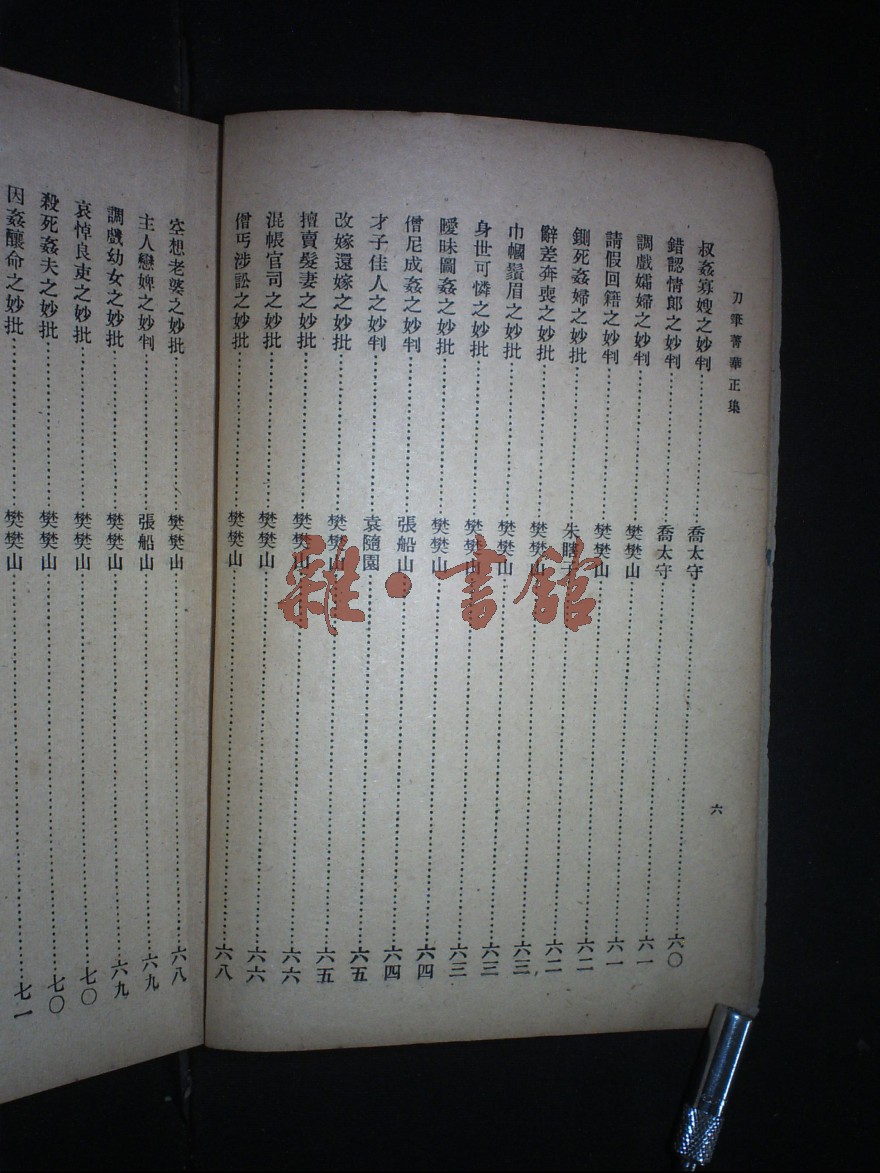 刀筆菁華正集
六
叔姦寡嫂之妙判……喬太守……六〇
錯認情郎之妙判……喬太守……六一
調戲孀婦之妙判……樊樊山……六一
請假回籍之妙判……樊樊山……六二
鍘死姦婦之妙批……朱瞎……六二
辭差奔喪之妙批……樊樊山……六三
巾幗鬚眉之妙批……樊樊山……六三
身世可憐之妙批……樊樊山……六三
曖昧圖姦之妙批……樊樊山……六四
僧尼成姦之妙判……張船山……六四
才子佳人之妙判……袁隨園……六五
改嫁還嫁之妙批……樊樊山……六五
擅賣髮妻之妙批……樊樊山……六六
混帳官司之妙批……樊樊山……六六
僧丐涉訟之妙批……樊樊山……六八
空想老婆之妙批……樊樊山……六八
主人戀婢之妙判……張船山……六九
調戲幼女之妙批……樊樊山……六九
哀悼良吏之妙批……樊樊山……七〇
殺死姦夫之妙批……樊樊山……七〇
因姦釀命之妙批……樊樊山……七一
雜·書館